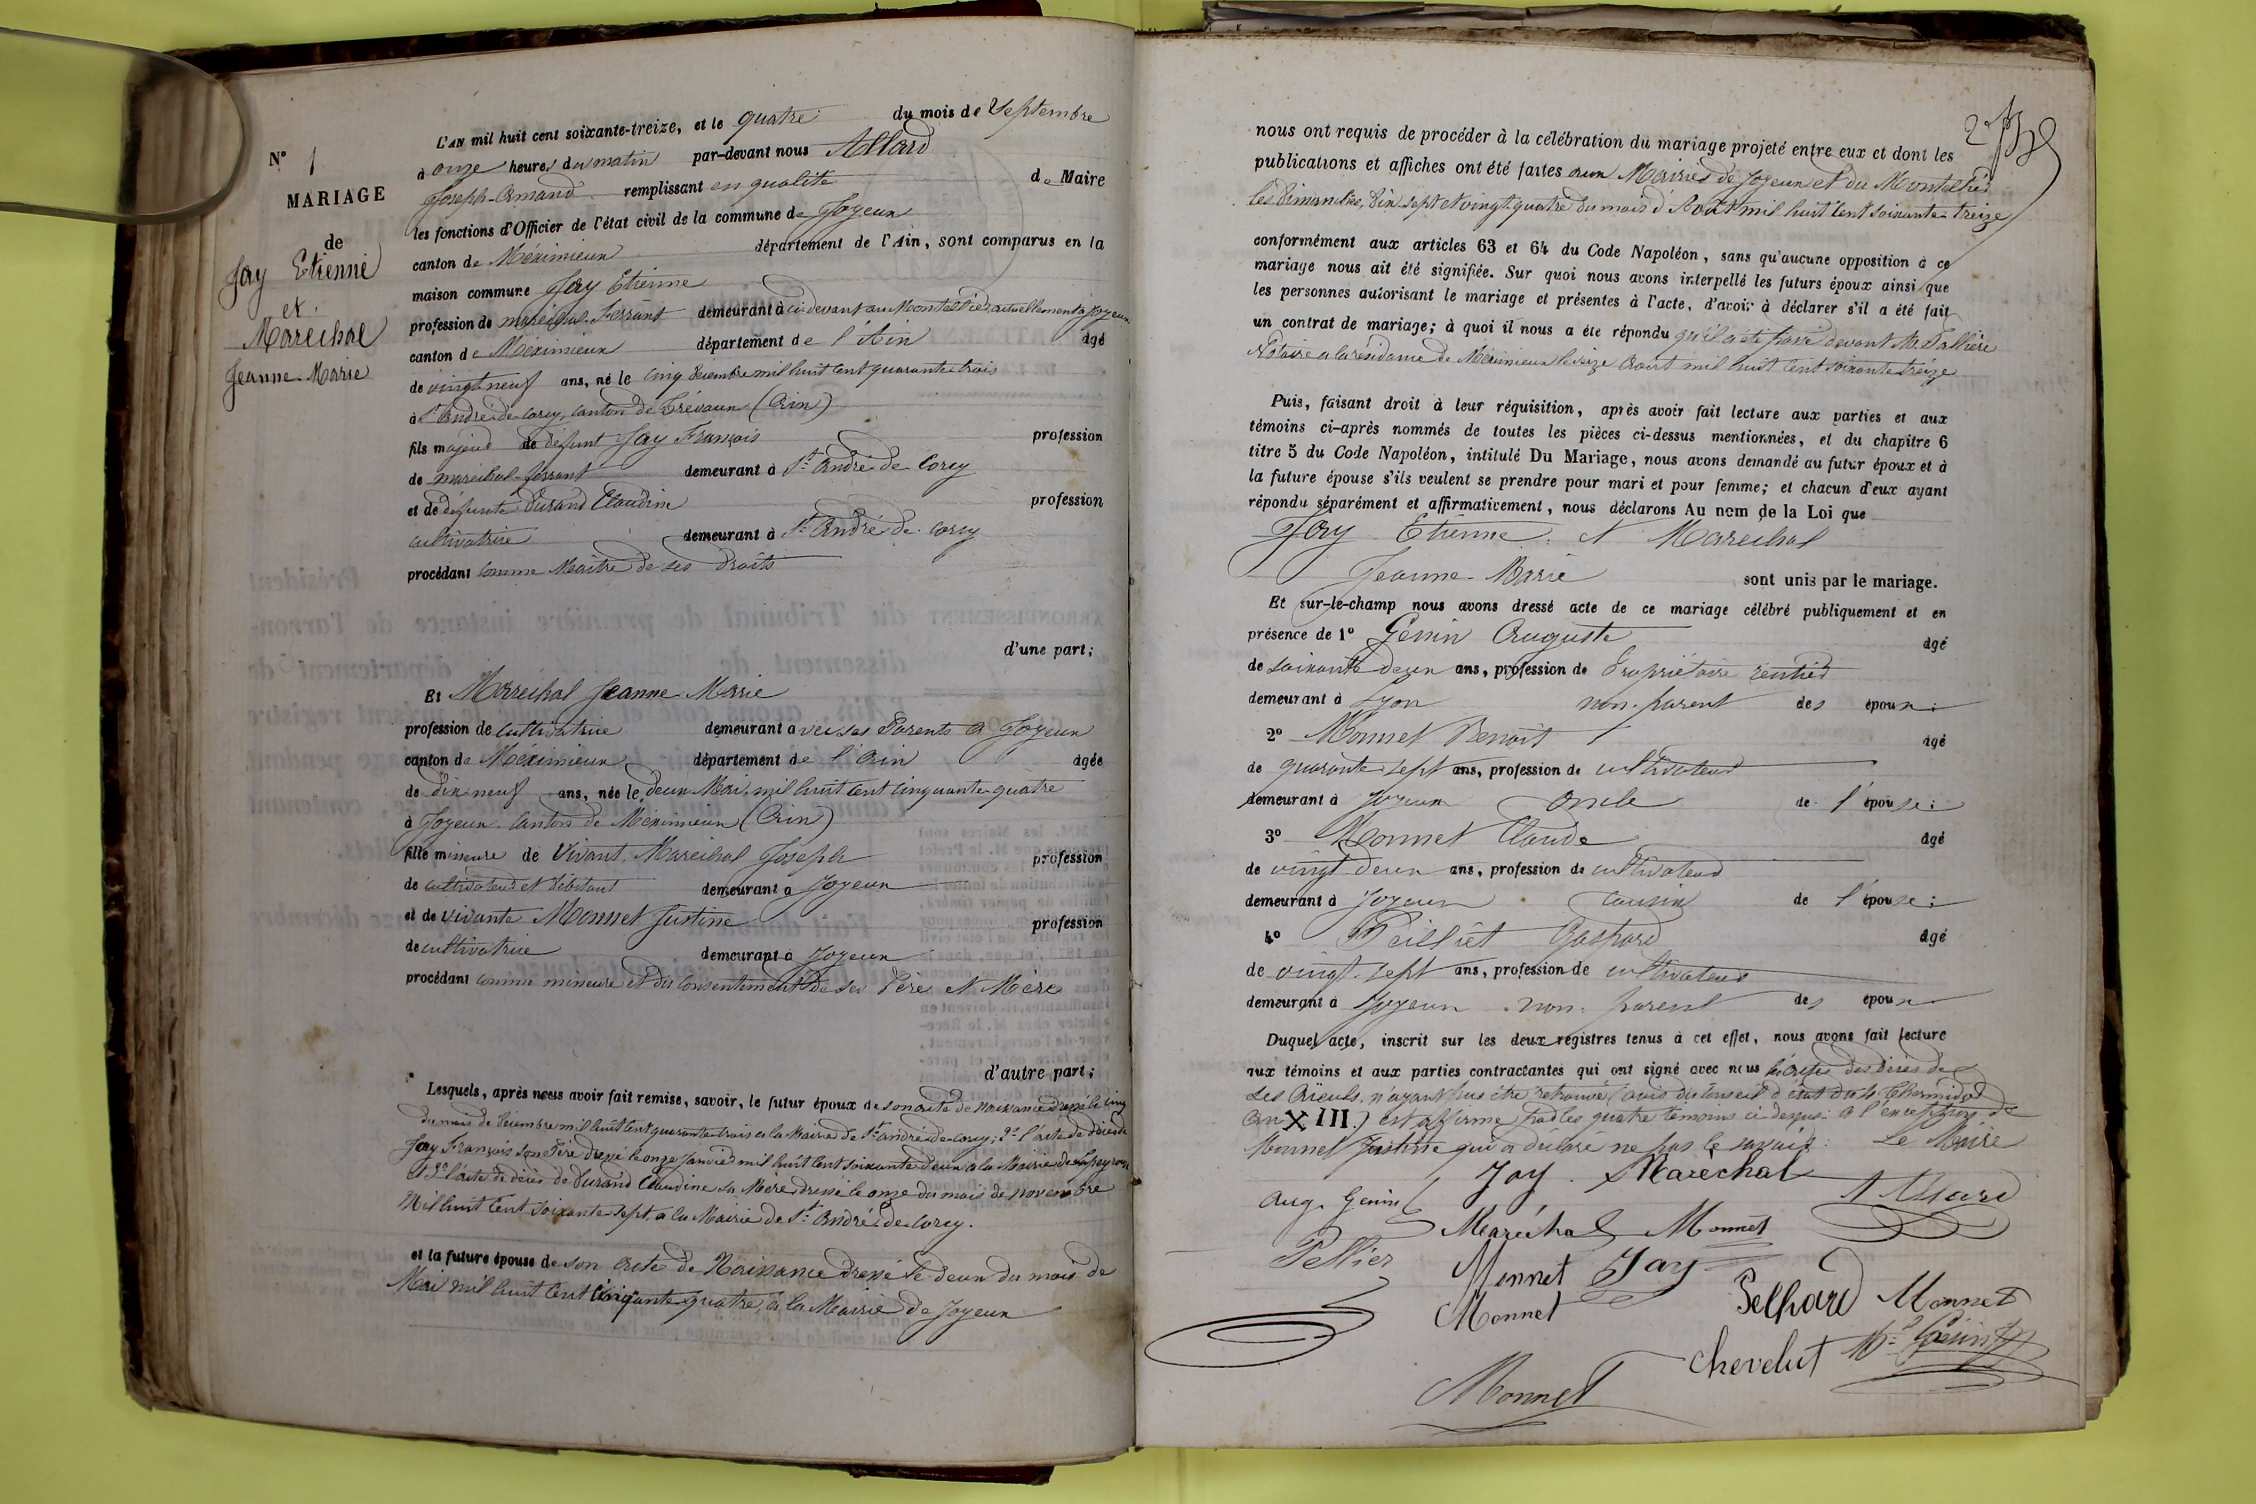 N° 1
MARIAGE
de
Jay Etienne
et
Maréchal
Jeanne-Marie
L'AN mil huit cent soixante-treize, et le quatre du mois de Septembre
à onze heures du matin par-devant nous Allard
Joseph-Amand remplissant en qualité de Maire
les fonctions d'Officier de l'état civil de la commune de Joyeux
canton de Méximieux département de l'Ain, sont comparus en la
maison commune Jay Etienne
profession de maréchal-ferrant demeurant à ci-devant au Montellier, actuellement à Joyeux
canton de Méximieux département de l'Ain âgé
de vingt neuf ans, né le cinq Décembre mil huit cent quarante-trois
à St André-de-Corcy, canton de Trévoux (Ain)
fils majeur de défunt Jay François profession
de maréchal-ferrant demeurant à St André de Corcy
et de défunte Durand Claudine profession
cultivatrice demeurant à St André de Corcy
procédant comme Maître de ses droits
d'une part;
Et Maréchal Jeanne-Marie
profession de cultivatrice demeurant avec ses Parents à Joyeux
canton de Méximieux département de l'Ain âgée
de dix neuf ans, née le deux Mai mil huit cent cinquante-quatre
à Joyeux canton de Méximieux (Ain)
fille mineure de vivant Maréchal Joseph profession
de cultivateur et débitant demeurant à Joyeux
et de vivante Monnet Justine profession
de cultivatrice demeurant à Joyeux
procédant comme mineure et du consentement de ses Père et Mère
d'autre part;
Lesquels, après nous avoir fait remise, savoir, le futur époux de son acte de Naissance dressé le cinq
du mois de Décembre mil huit cent quarante-trois à la Mairie de St André-de-Corcy; 2° l'acte de décès de
Jay François son Père dressé le onze Janvier mil huit cent soixante deux à la Mairie de Lapeyrouse
et 3° l'acte de décès de Durand Claudine sa Mère dressé le onze du mois de novembre
mil huit cent soixante-sept, à la Mairie de St André-de-Corcy.
et la future épouse de son acte de Naissance dressé le deux du mois de
Mai mil huit cent cinquante-quatre, à la Mairie de Joyeux
nous ont requis de procéder à la célébration du mariage projeté entre eux et dont les
publications et affiches ont été faites aux Mairies de Joyeux et du Montellier
les dimanches, dix sept et vingt-quatre du mois d'Août mil huit cent soixante-treize
conformément aux articles 63 et 64 du Code Napoléon, sans qu'aucune opposition à ce
mariage nous ait été signifiée. Sur quoi nous avons interpellé les futurs époux ainsi que
les personnes autorisant le mariage et présentes à l'acte, d'avoir à déclarer s'il a été fait
un contrat de mariage; à quoi il nous a été répondu qu'il a été passé devant Me
Notaire à la résidence de Méximieux le seize août mil huit cent soixante-treize
Puis, faisant droit à leur réquisition, après avoir fait lecture aux parties et aux
témoins ci-après nommés de toutes les pièces ci-dessus mentionnées, et du chapitre 6
titre 5 du Code Napoléon, intitulé Du Mariage, nous avons demandé au futur époux et à
la future épouse s'ils veulent se prendre pour mari et pour femme; et chacun d'eux ayant
répondu séparément et affirmativement, nous déclarons Au nom de la Loi que
Jay Etienne et Maréchal
Jeanne-Marie sont unis par le mariage.
Et sur-le-champ nous avons dressé acte de ce mariage célébré publiquement et en
présence de 1° Genin Auguste âgé
de soixante deux ans, profession de Propriétaire rentier
demeurant à Lyon non-parent des époux;
2° Monnet Benoît âgé
de quarante-sept ans, profession de cultivateur
demeurant à Joyeux oncle de l'épouse;
3° Monnet Claude âgé
de vingt deux ans, profession de cultivateur
demeurant à Joyeux cousin de l'épouse;
4° Gaspard âgé
de vingt-sept ans, profession de cultivateur
demeurant à Joyeux non-parent des époux
Duquel acte, inscrit sur les deux registres tenus à cet effet, nous avons fait lecture
aux témoins et aux parties contractantes qui ont signé avec nous les actes des décès de
ses Aïeuls n'ayant pus être retrouvé (avis du conseil d'état du 4 Thermidor
an XIII.) est affirmé par les quatre témoins ci-dessus à l'exception de
Monnet Justine qui a déclaré ne pas le savoir. Le Maire
Jay Maréchal
Aug. Genin Allard
Maréchal Monnet
Pellier Monnet Jay
Monnet Pelhard Monnet
Chevelut
Monnet